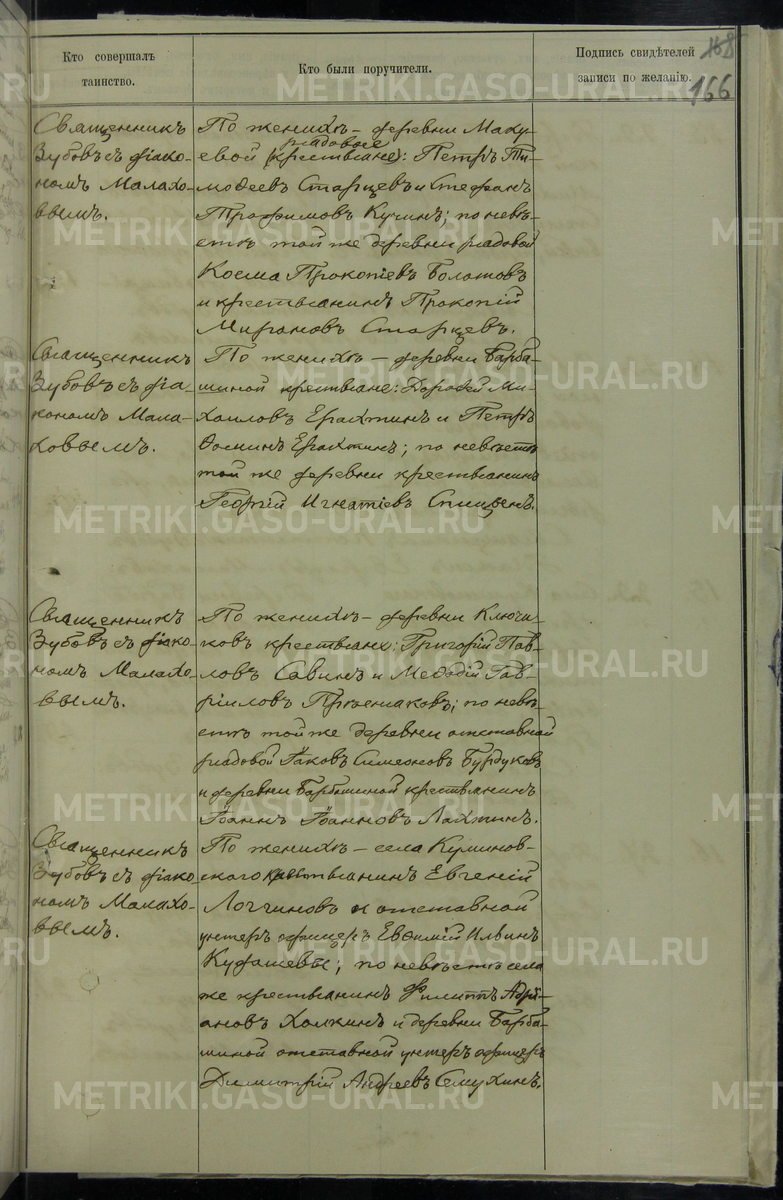 Кто совершалъ
таинство.
Кто были поручители.
Подпись свидѣтелей
записи по желанію.
168
166
Священникъ
Зубовъ съ діако-
номъ Малахо-
вымъ.
По женихѣ – деревни Маку-
рядовые
евой (крестьяне): Петръ Ти-
моѳеевъ Старцевъ и Стефанъ
Трофимовъ Кучинъ; по невѣ-
стѣ той же деревни рядовой
Косма Прокопіевъ Болотовъ
и крестьянинъ Прокопій
Мироновъ Старцевъ.
Священникъ
Зубовъ съ діа-
кономъ Мала-
ховымъ.
По женихѣ – деревни Барба-
шиной крестьяне: Дороѳей Ми-
хаиловъ Ерахтинъ и Петръ
Ѳоминъ Ерахтинъ; по невѣстѣ
той же деревни крестьянинъ
Георгій Игнатіевъ Спицынъ.
Священникъ
Зубовъ съ діако-
номъ Малахо-
вымъ.
По женихѣ – деревни Ключи-
ковъ крестьяне: Григорій Пав-
ловъ Савинъ и Меѳодій Гав-
ріиловъ Просняковъ; по невѣ-
стѣ той же деревни отставной
рядовой Іаковъ Симеоновъ Бурдуковъ
и деревни Барбашиной крестьянинъ
Іоаннъ Іоанновъ Лахтинъ.
Священникъ
Зубовъ съ діако-
номъ Малахо-
вымъ.
По женихѣ – села
скаго крестьянинъ Евгеній
Логгиновъ и отставной
унтеръ офицеръ Евѳимій Ильинъ
Куфашевы; по невѣстѣ села
же крестьянинъ Филиппъ Адрі-
ановъ Холкинъ и деревни Барба-
шиной отставной унтеръ офицеръ
Димитрій Андреевъ Семухинъ.
METRIKI.GASO-URAL.RU